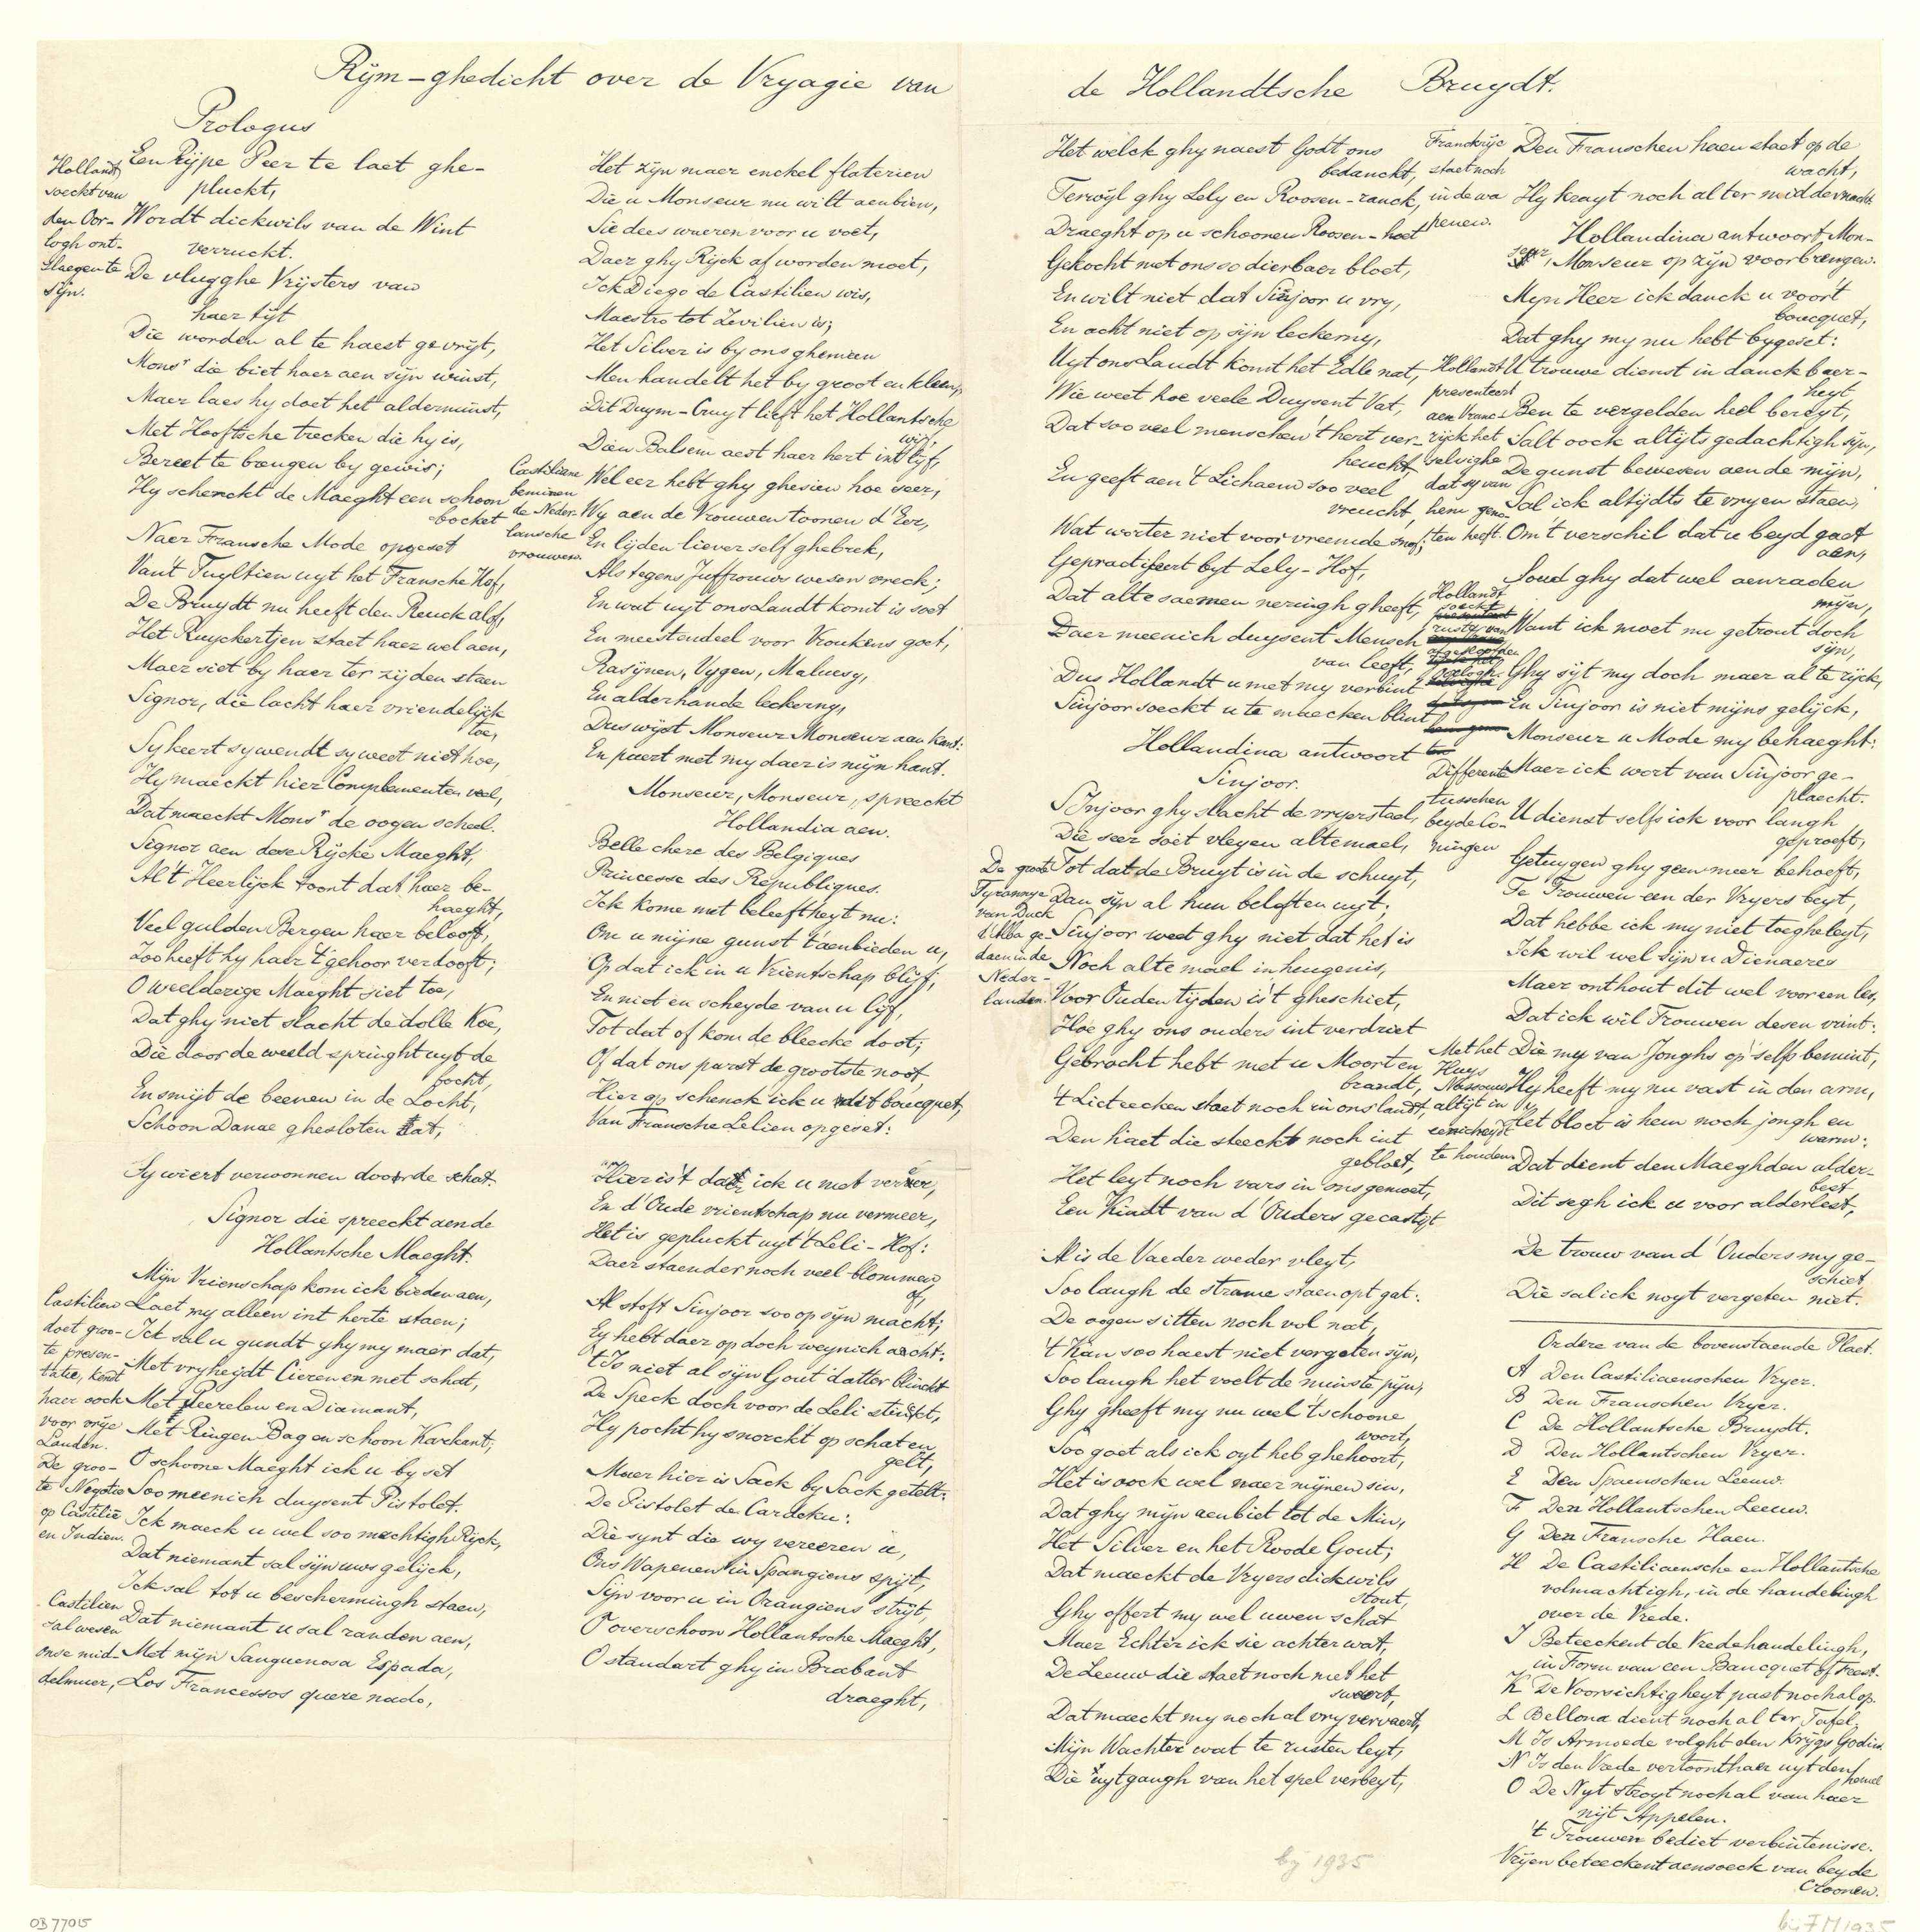 Rijm-ghedicht over de Vryagie van de Hollandtsche Bruydt.
Prologus
Hollandt
soeckt van
den Oor-
logh ont-
slaegen te
sijn.
Een Rijpe Peer te laet ghe-
pluckt,
Wordt dickwils van de Wint
verruckt.
De vlugghe Vrijsters van
haer tijt
Die worden al te haest gevrijt,
Monsr die biet haer aen sijn winst,
Maer laes hy doet het alderminst,
Met Hooftsche trecken die hy is,
Bereet te brengen by gewis;
Hy schenckt de Maeght een schoon
bocket
Naer Fransche Mode opgeset
Van't Tuyltien uyt het Fransche Hof,
De Bruydt nu heeft den Reuck alof,
Het Ruyckertjen staet haer wel aen,
Maer siet by haer ter zijden staen
Signor, die lacht haer vriendelijck
toe,
Sy keert sy wendt sy weet niet hoe,
Hy maeckt hier Complementen veel,
Dat maeckt Monsr de oogen scheel.
Signor aen dese Rijcke Maeght,
Al't Heerlijck toont dat haer be-
haeght,
Veel gulden Bergen haer belooft,
Zoo heeft hy haer 't gehoor verdooft;
O weelderige Maeght siet toe,
Dat ghy niet slacht de dolle Koe,
Die door de weeld springht uyt de
bocht,
En smijt de beenen in de Locht,
Schoon Danae ghesloten Zat,
Sy wiert verwonnen door de schat.
Signor die spreeckt aen de
Hollantsche Maeght.
Mijn Vrienschap kom ick bieden aen,
Castilien
doet groo-
te presen-
tatie, kent
haer oock
voor vrije
Landen.
De groo-
te Negotie
op Castilie
en Indien.
Laet my alleen int herte staen;
Ick sal u gundt ghy my maer dat,
Met vryheydt Cieren en met schat,
Met Peerelen en Diamant,
Met Ringen Bag en schoon Karkant;
O schoone Maeght ick u by set
Soo meenich duysent Pistolet.
Ick maeck u wel soo machtigh Rijck,
Dat niemant sal sijn uws gelijck,
Ick sal tot u beschermingh staen,
Castilien
sal wesen
onse mid-
delmuer,
Dat niemant u sal randen aen,
Met mijn Sanguenosa Espada,
Los Francessos quere nado,
Het zijn maer enckel flaterien
Die u Monseur nu wilt aenbien,
Sie dees waeren voor u voet,
Daer ghy Rijck af worden moet,
Ick Diego de Castilien wis,
Maestro tot Zevilien is;
Het Silver is by ons ghemeen
Men handelt het by groot en kleen,
Dit Duym-Cruyt lieft het Hollantsche
wijf,
Dien Balsem aest haer hert int lijf,
Castiliane
beminen
de Neder-
lansche
vrouwen.
Wel eer hebt ghy ghesien hoe seer,
Wy aen de Vrouwen toonen d'Eer,
En lijden liever self ghebrek,
Als tegens Juffrouws wesen vreck;
En wat uyt ons Landt komt is soet
En meestendeel voor Vroukens goet,
Rasijnen, Vygen, Malvesy,
En alderhande leckerny,
Dus wijst Monseur Monseur aen kant:
En paert met my daer is mijn hant.
Monseur, Monseur, spreeckt
Hollandia aen.
Belle chere des Belgiques
Princesse des Republiques.
Ick kome met beleeftheyt nu:
Om u mijne gunst t'aenbieden u,
Op dat ick in u Vrientschap blijf,
En niet en scheyde van u lijf,
Tot dat of kom de bleecke doot;
Of dat ons parst de grootste noot,
Hier op schenck ick u dit boucquet,
Van Fransche Lelien opgeset:
Hier is't dat ick u met vereer,
En d'Oude vrientschap nu vermeer,
Het is gepluckt uyt 't Leli-Hof:
Daer staender noch veel blommen
of,
Al stoft Sinjoor soo op sijn macht;
Ey hebt daer op doch weynich acht:
't Is niet al sijn Gout datter blinckt
De Speck doch voor de Leli stinckt,
Hy pocht hy snorckt op schat en
gelt,
Maer hier is Sack by Sack getelt:
De Pistolet de Cardeku:
Die synt die wy vereeren u,
Ons Wapenen in Spangiens spijt,
Sijn voor u in Orangiens strijt,
O overschoon Hollantsche Maeght,
O standart ghy in Brabant
draeght,
Het welck ghy naest Godt ons
bedanckt,
Terwijl ghy Lely en Roosen-ranck,
Draeght op u schoonen Roosen-hoet
Gekocht met ons so dierbaer bloet,
En wilt niet dat Sinjoor u vry,
En acht niet op sijn leckerny,
Uyt ons Landt komt het Edle nat,
Wie weet hoe veele Duysent Vat,
Dat soo veel menschen 't hert ver-
heucht,
En geeft aen 't Lichaem soo veel
vreucht,
Wat worter niet voor vreemde snof,
Gepractiseert byt Lely-Hof,
Dat alte saemen neringh gheeft,
Daer meenich duysent Mensch
van leeft,
Dus Hollandt u met my verbint
Sinjoor soeckt u te maecken blint
Hollandina antwoort
Sinjoor.
Sinjoor ghy slacht de vryers tael,
Die seer soet vleyen altemael,
De groote
Tyrannye
van Duck
d'Alba ge-
daen in de
Neder-
landen.
Tot dat de Bruyt is in de schuyt,
Dan sijn al hun beloften uyt;
Sinjoor weet ghy niet dat het is
Noch altemael in heugenis,
Voor Ouden tijden is't gheschiet,
Hoe ghy ons ouders int verdriet
Gebracht hebt met u Moort en
brandt,
't Licteecken staet noch in ons landt,
Den haet die steeckt noch int
gebloet,
Het leyt noch vars in ons gemoet,
Een Kindt van d'Ouders gecastijt
Al is de Vaeder weder vleyt,
Soo langh de strame staen opt gat:
De oogen sitten noch vol nat,
't Kan soo haest niet vergeten sijn,
Soo langh het voelt de minste pijn,
Ghy gheeft my nu wel 't schoone
woort,
Soo goet als ick oyt heb ghehoort,
Het is oock wel naer mijnen sin,
Dat ghy mijn aenbiet tot de Min,
Het Silver en het Roode Gout;
Dat maeckt de Vryers dickwils
stout,
Ghy offert my wel uwen schat
Maer Echter ick sie achter wat,
De Leeuw die staet noch met het
swaert,
Dat maeckt my noch al vry vervaert,
Mijn Wachter wat te rusten leyt,
Die uytgangh van het spel verbeyt,
Franckrijc
staet noch
in de wa
penen.
Den Franschen haen staet op de
wacht,
Hy krayt noch al ter middernacht
Hollandina antwoort, Mon-
seur, Monseur op zijn voorbrengen.
Mijn Heer ick danck u voor't
boucquet,
Dat ghy my nu hebt bygeset:
Hollandt
presenteert
aen Vranc-
rijck het
selvighe
dat sy van
hem geno-
ten heeft.
U trouwe dienst in danckbaer-
heyt
Ben te vergelden heel bereyt,
Salt oock altijts gedachtigh sijn,
De gunst bewesen aen de mijn,
Sal ick altijdts te vryen staen,
Om't verschil dat u beyd gaet
aen,
Soud ghy dat wel aenraden
mijn,
Hollandt
soeckt
rust van
den
oorlogh
Want ick moet nu getrout doch
sijn,
Ghy sijt my doch maer al te rijck,
En Sinjoor is niet mijns gelijck,
Monseur u Mode my behaeght:
Differente
tusschen
beyde Co-
ningen
Maer ick wort van Sinjoor ge-
plaecht.
U dienst selfs ick voor langh
geproeft,
Getuygen ghy geen meer behoeft,
Te Trouwen een der Vryers beyt,
Dat hebbe ick my niet toegheleyt,
Ick wil wel sijn u Dienaeres
Maer onthout dit wel voor een les,
Dat ick wil Trouwen desen vrint:
Met het
Huys
Nassouw
altijt in
eenicheydt
te houden
Die my van Jonghs op selfs bemint,
Hy heeft my nu vast in den arm,
Het bloet is hem noch jongh en
warm:
Dat dient den Maeghden alder-
best
Dit segh ick u voor alderlest,
De trouw van d'Ouders my ge-
schiet
Die sal ick noyt vergeten niet.
Ordere van de bovenstaende Plaet.
A Den Castiliaenschen Vryer.
B Den Franschen Vryer.
C De Hollantsche Bruydt.
D Den Hollantschen Vryer.
E Den Spaenschen Leeuw.
F Den Hollantschen Leeuw.
G Den Fransche Haen.
H De Castiliaensche en Hollantsche
volmachtigh, in de handelingh
over de Vrede.
I Beteeckent de Vredehandelingh,
in Form van een Bancquet of Feest.
K De Voorsichtigheyt past noch al op.
L Bellona dient noch al ter Tafel.
M Is Armoede volght den Krijgs Godin.
N Is den Vrede vertoont haer uyt den
hemel
O De Nyt stroyt noch al van haer
nijt Appelen.
't Trouwen bediet verbintenisse.
Vrijen beteeckent aensoeck van beyde
Croonen.
bij 1935
OB 77015
bij FM 1935